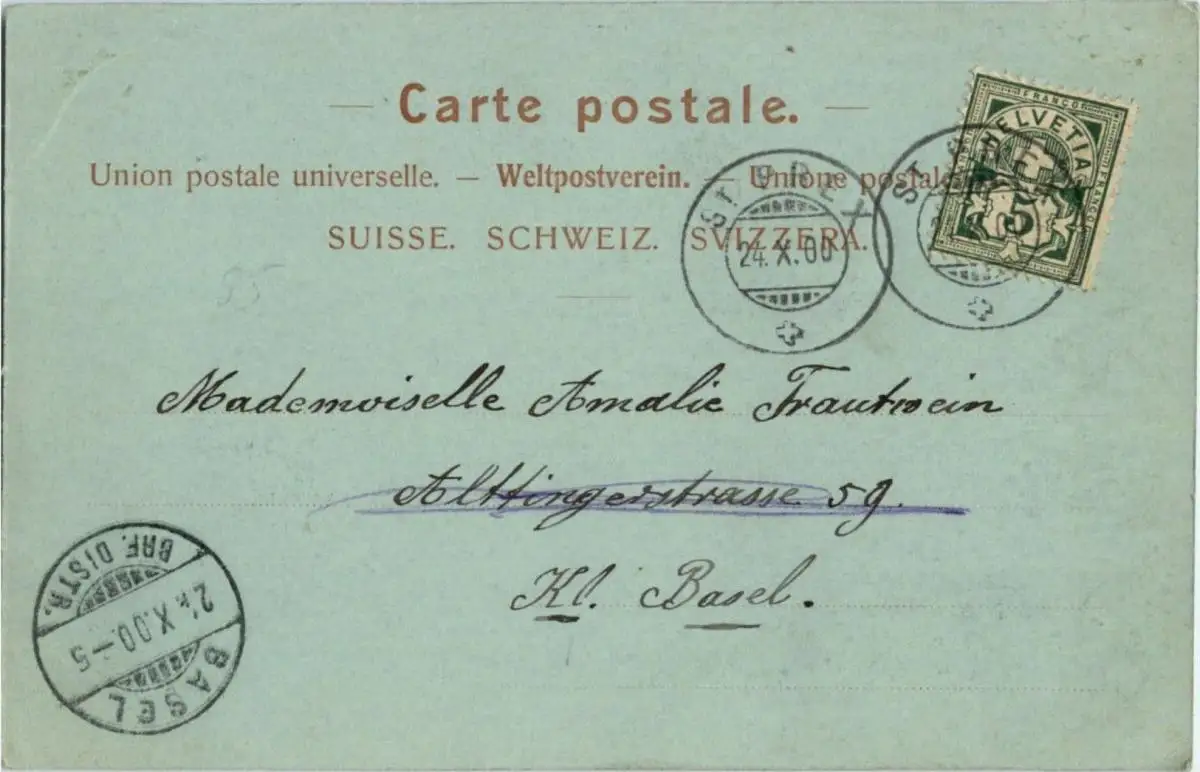 — Carte postale. —
Union postale universelle. — Weltpostverein. — Unione postale
SUISSE. SCHWEIZ. SVIZZERA.
FRANCO
HELVETIA
FRANCO
5
24.X.00
ST.
35
Mademoiselle Amalie Trautwein
Alttingerstrasse 59.
Kl. Basel.
BRF. DISTR.
24.X.00.-5
BASEL